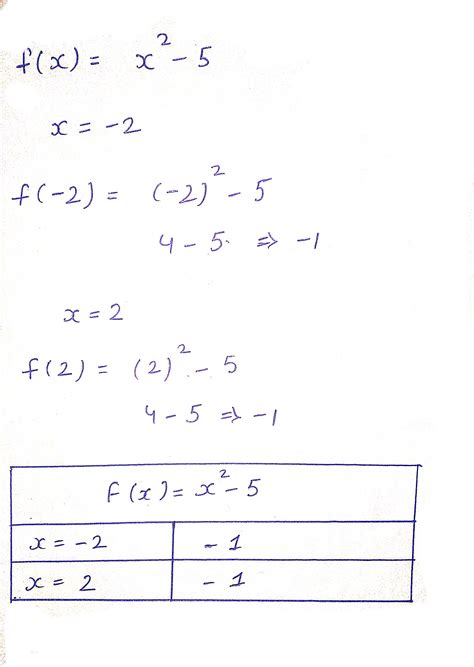 f(x) = x² - 5
x = -2
f(-2) = (-2)² - 5
4 - 5 ⇒ -1
x = 2
f(2) = (2)² - 5
4 - 5 ⇒ -1
f(x) = x² - 5
x = -2 - 1
x = 2 - 1